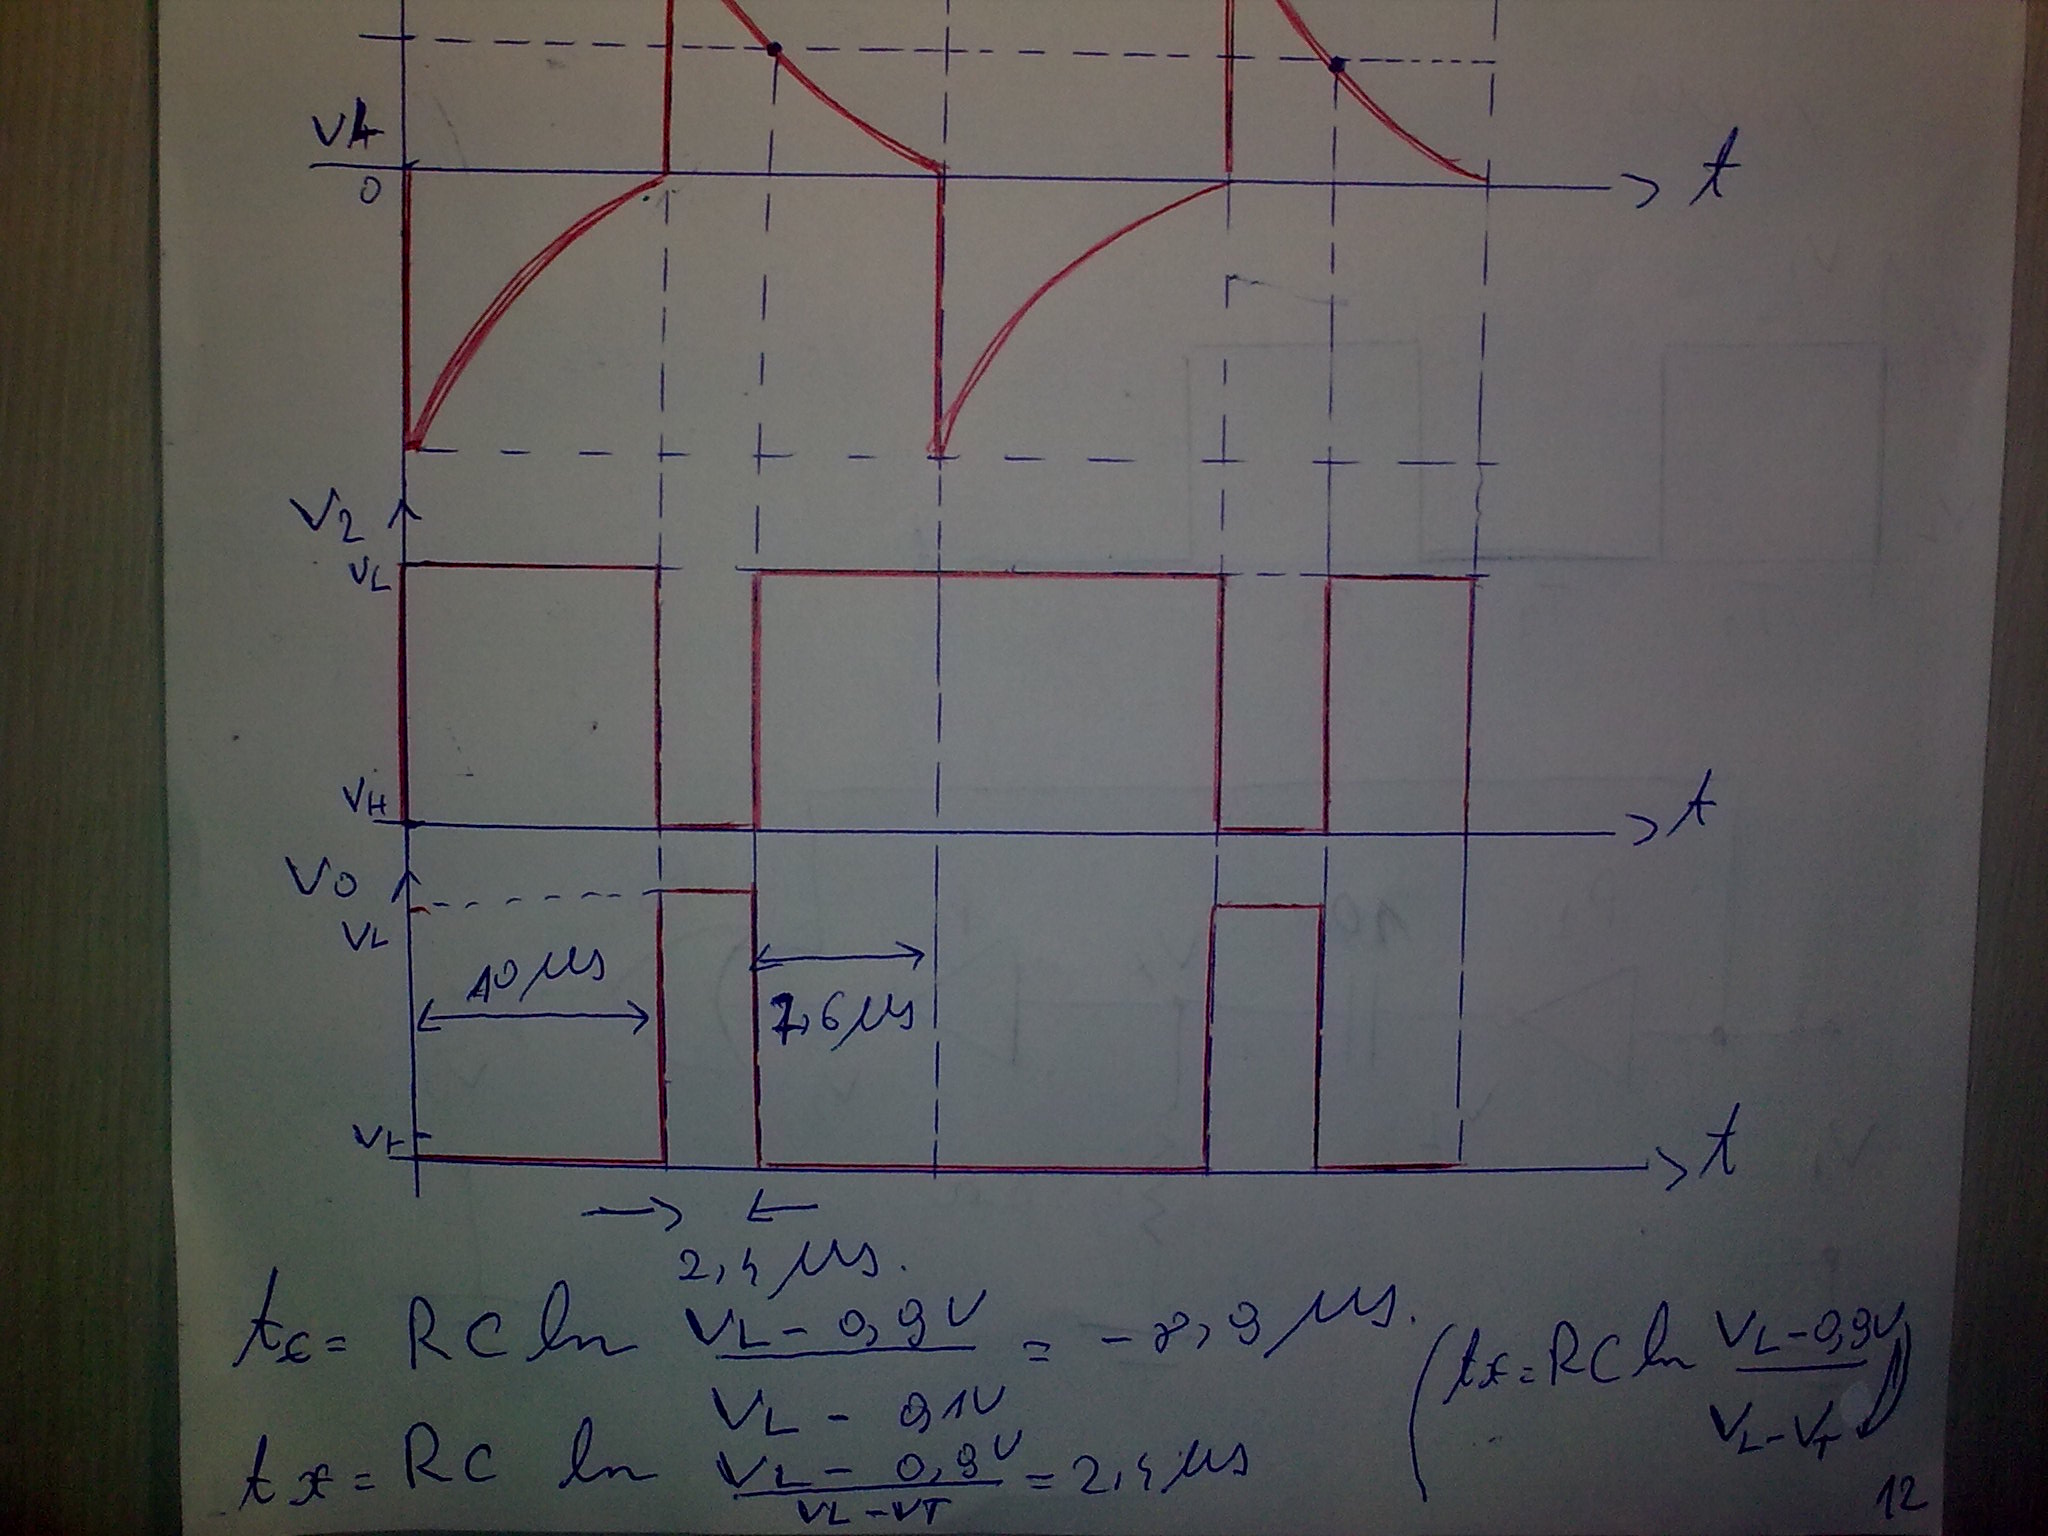 VA
0
t
V2
VL
VH
t
VO
VL
10 μs
7,6 μs
t
2,4 μs.
RC ln (VL - 0,9V) / (VL - 0,1V) = - 8,9 μs.
tx = RC ln (VL - 0,9V) / (VL - VT) = 2,4 μs
(tx = RC ln (VL - 0,9V) / (VL - VT))
12